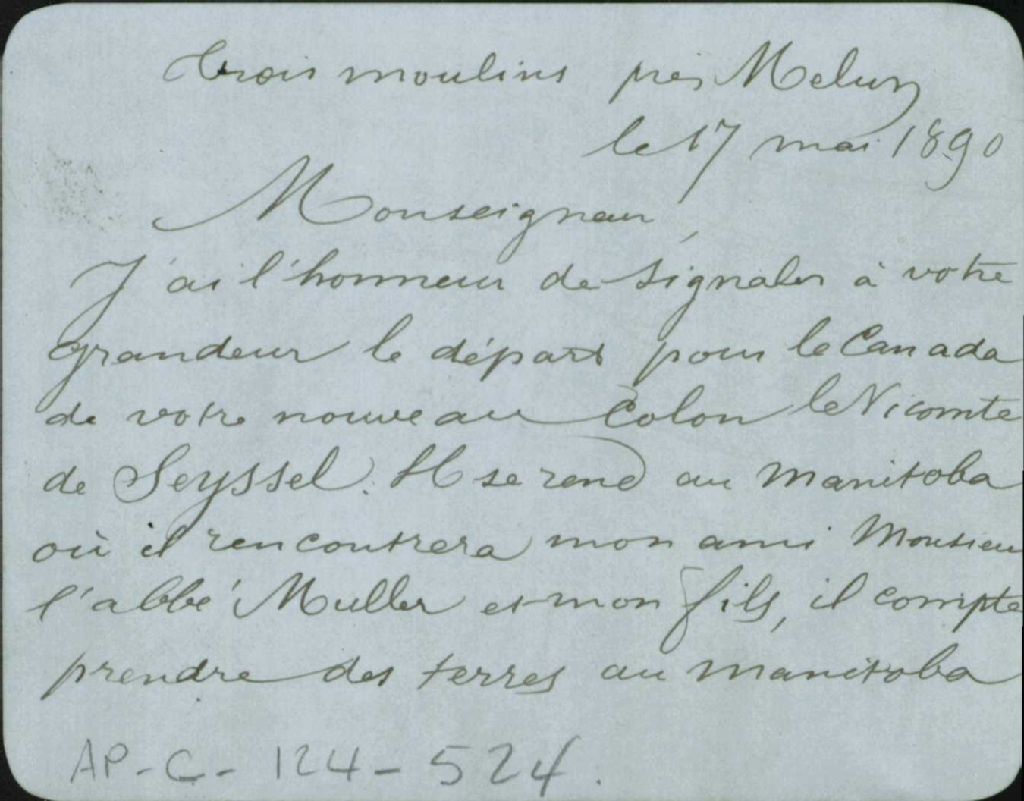 Trois moulins près Melun
le 17 mai 1890
Monseigneur,
J'ai l'honneur de signaler à votre
grandeur le départ pour le Canada
de votre nouveau Colon le Vicomte
de Seyssel. Il se rend au Manitoba
où il rencontrera mon ami Monsieur
l'abbé Muller et mon fils, il compte
prendre des terres au Manitoba
AP-C-124-524.